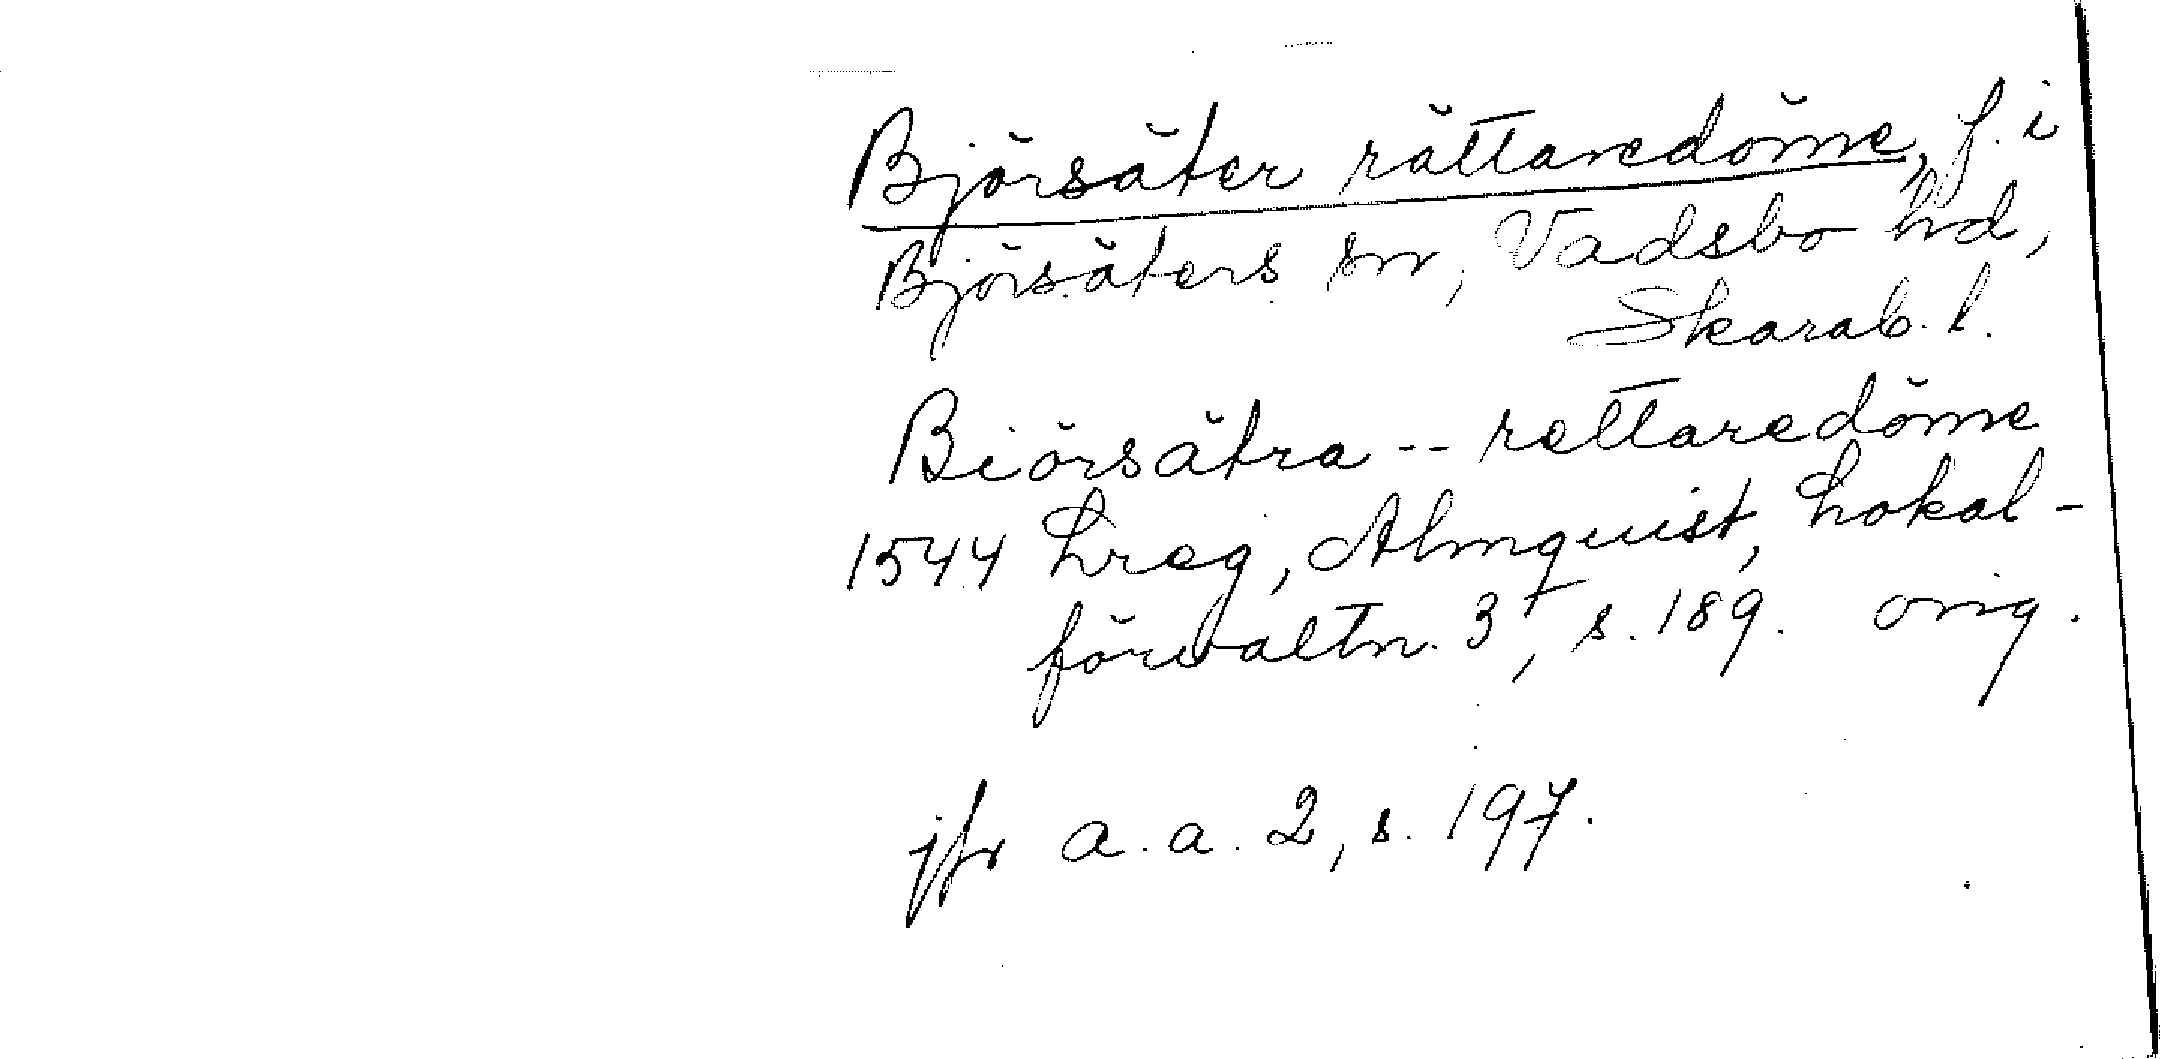 Björsäter rättaredöme, f. i
Björsäters sn, Vadsbo hd,
Skarab. l.
Biörsätra -- rettaredöme
1544 Lreg, Almquist, Lokal-
förvaltn. 3, s. 189. orig.
jfr a. a. 2, s. 197.